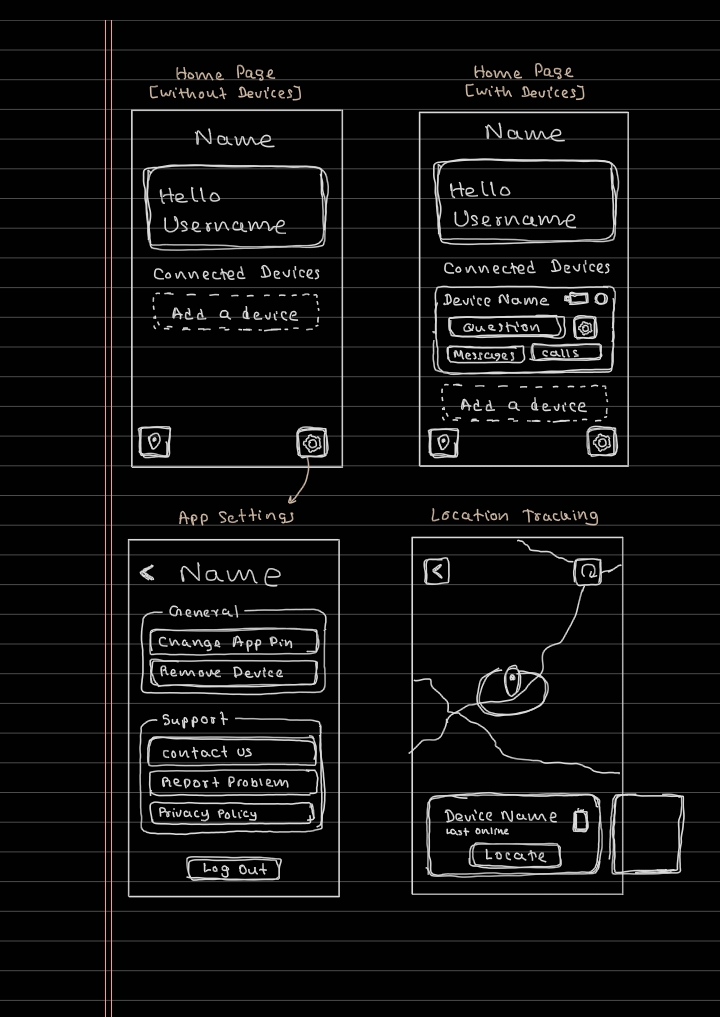 Home Page
[Without Devices]
Name
Hello
Username
Connected Devices
Add a device
Home Page
[With Devices]
Name
Hello
Username
Connected Devices
Device Name
Question
Messages
Calls
Add a device
App Settings
Name
General
Change App Pin
Remove Device
Support
Contact Us
Report Problem
Privacy Policy
Log Out
Location Tracking
Device Name
Last Online
Locate